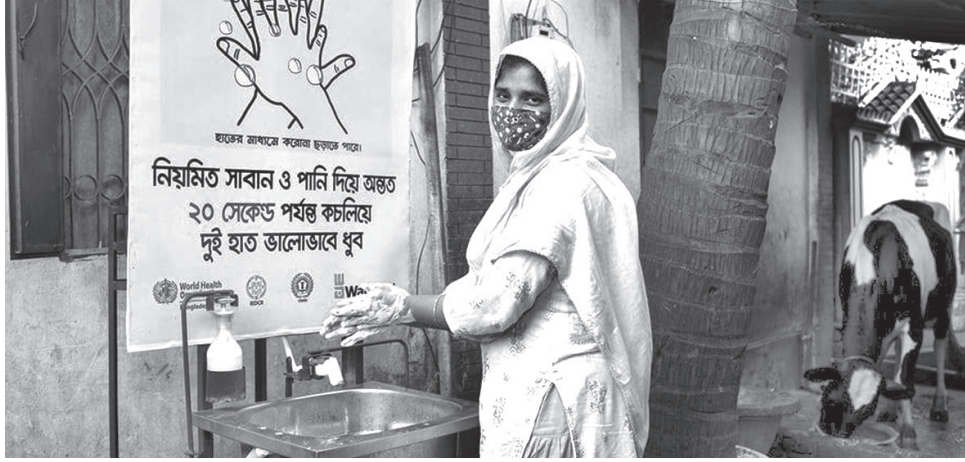 হাতের মাধ্যমে করোনা ছড়াতে পারে।
নিয়মিত সাবান ও পানি দিয়ে অন্তত
২০ সেকেন্ড পর্যন্ত কচলিয়ে
দুই হাত ভালোভাবে ধুব
World Health
IEDCR
Wa